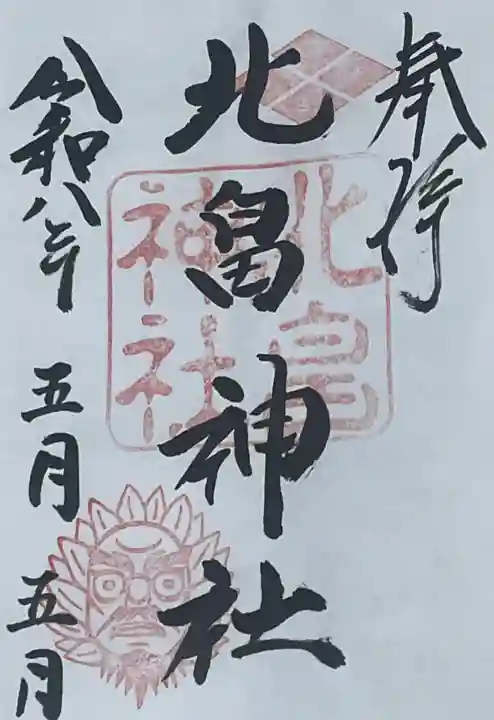 奉拝
北畠神社
令和八年五月五月
北畠
神社